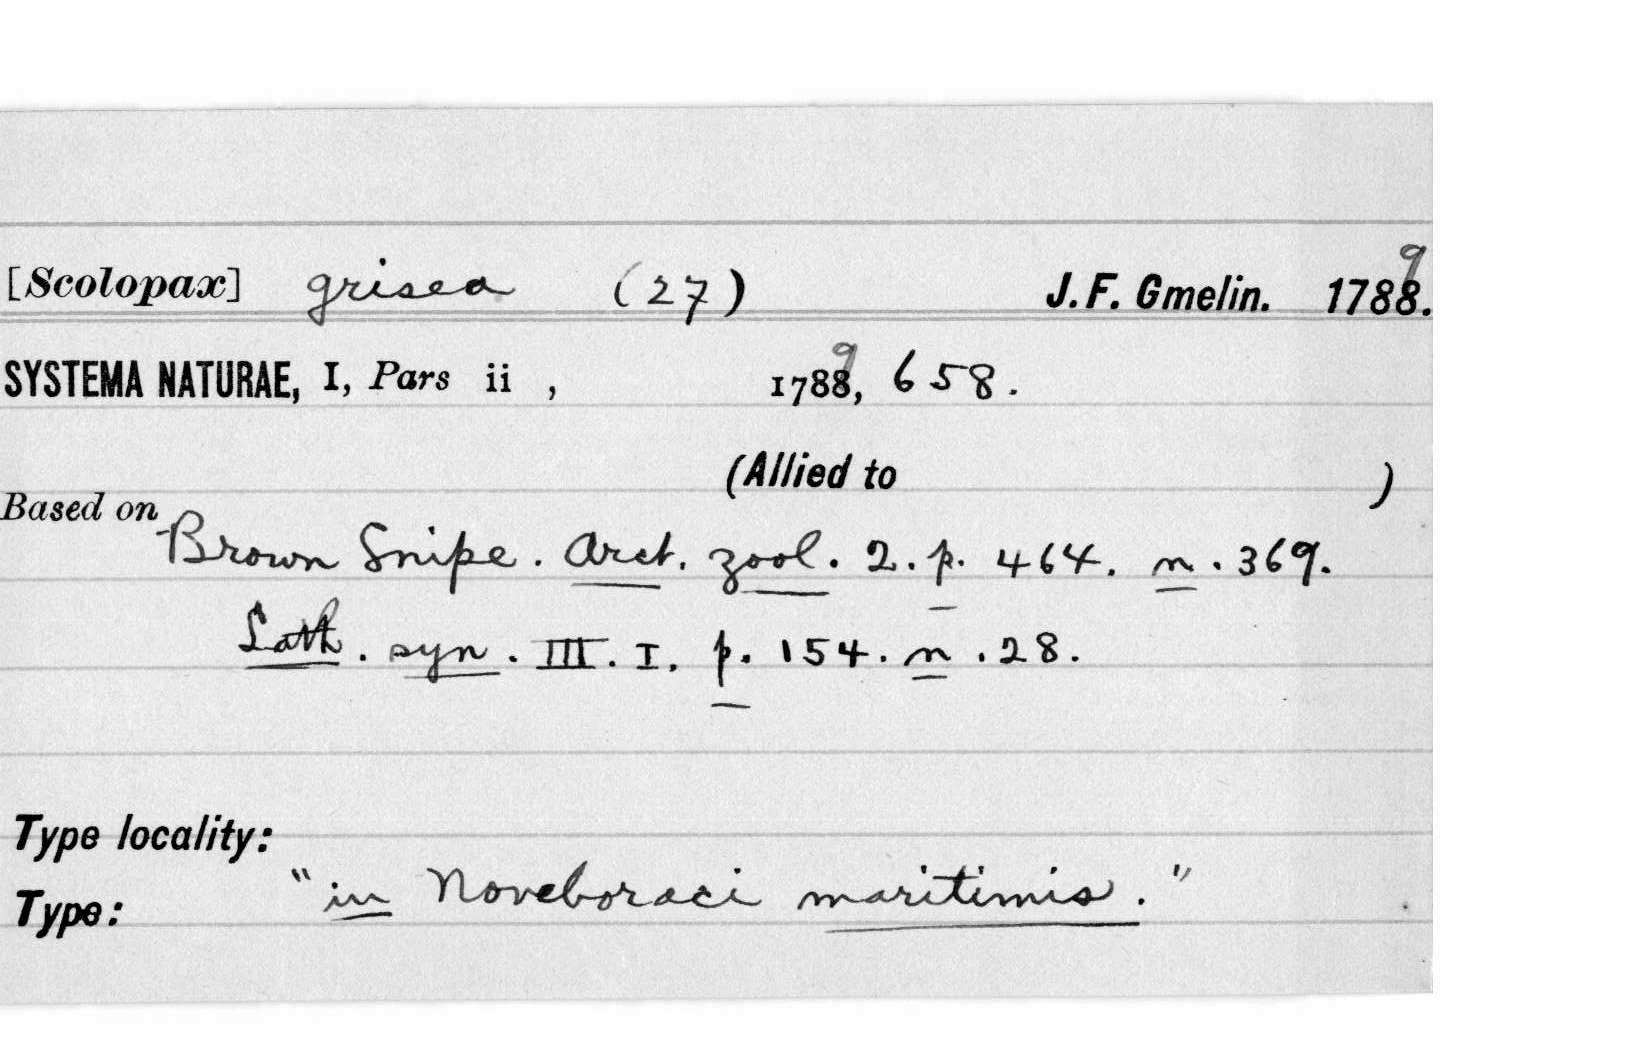 [Scolopax] grisea (27) J. F. Gmelin. 1788.9
SYSTEMA NATURAE, I, Pars ii , 17889, 658.
(Allied to )
Based on
Brown Snipe. Arct. zool. 2. p. 464. n. 369.
Lath. syn. III. I. p. 154. n. 28.
Type locality:
"in Noveboraci maritimis."
Type: